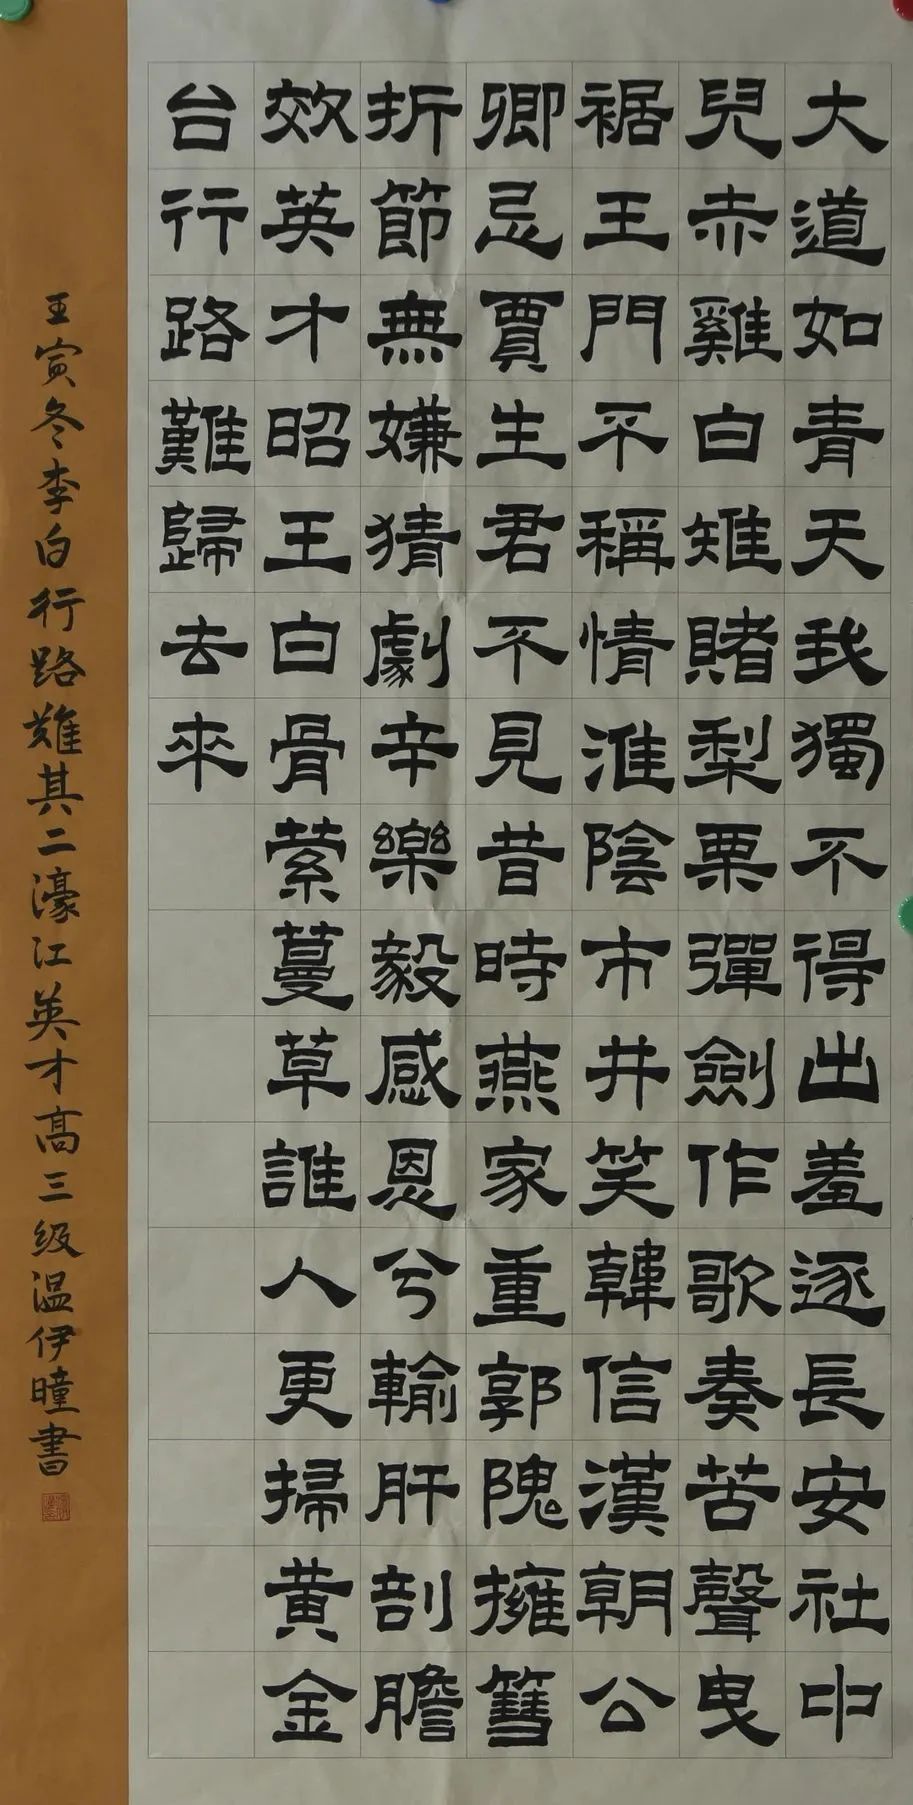 大道如青天我獨不得出羞逐長安社中
兒赤雞白雉賭梨栗彈劍作歌奏苦聲曳
裾王門不稱情淮陰市井笑韓信漢朝公
卿忌賈生君不見昔時燕家重郭隗擁篲
折節無嫌猜劇辛樂毅感恩兮輸肝剖膽
效英才昭王白骨縈蔓草誰人更掃黃金
台行路難歸去來
壬寅冬李白行路難其二濠江英才高三级温伊曈書